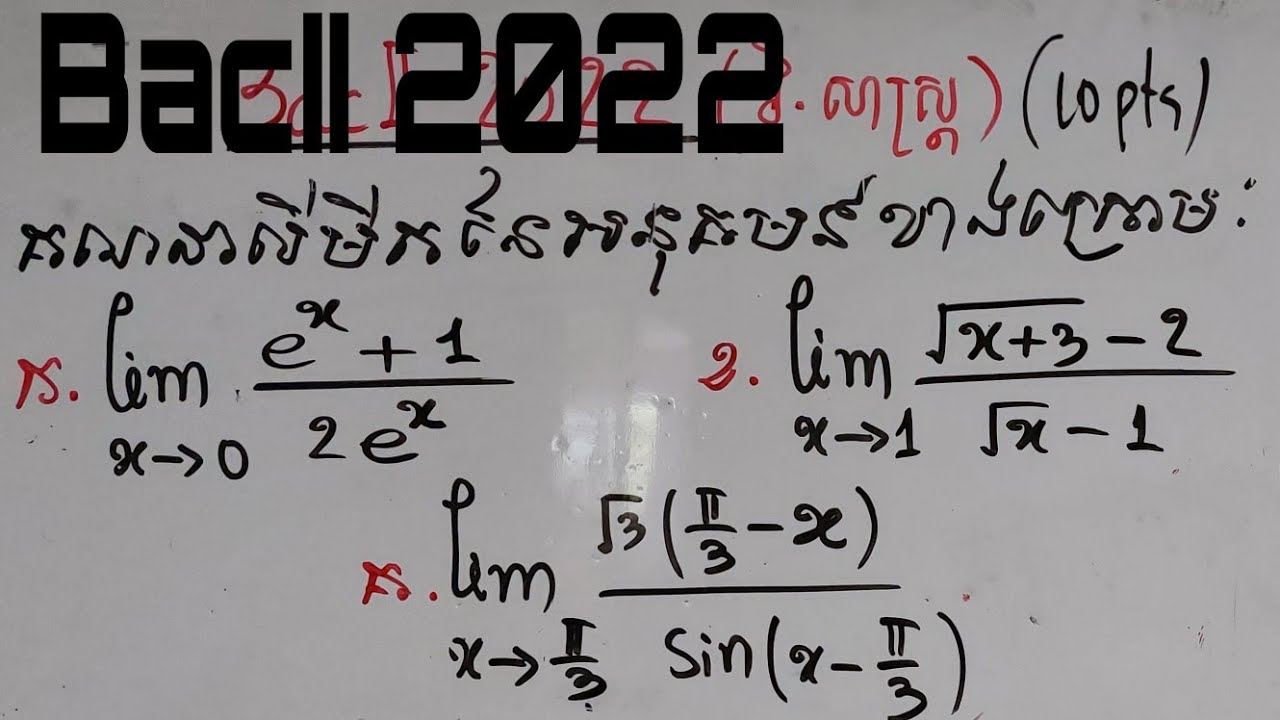 BacII 2022
BacII 2022 (វិ.សាស្ត្រ) (10pts)
គណនាលីមីតនៃអនុគមន៍ខាងក្រោម:
ក. lim x→0 (e^x + 1)/(2e^x)
ខ. lim x→1 (√(x+3) - 2)/(√x - 1)
ក. lim x→π/3 (√3(π/3 - x))/(sin(x - π/3))